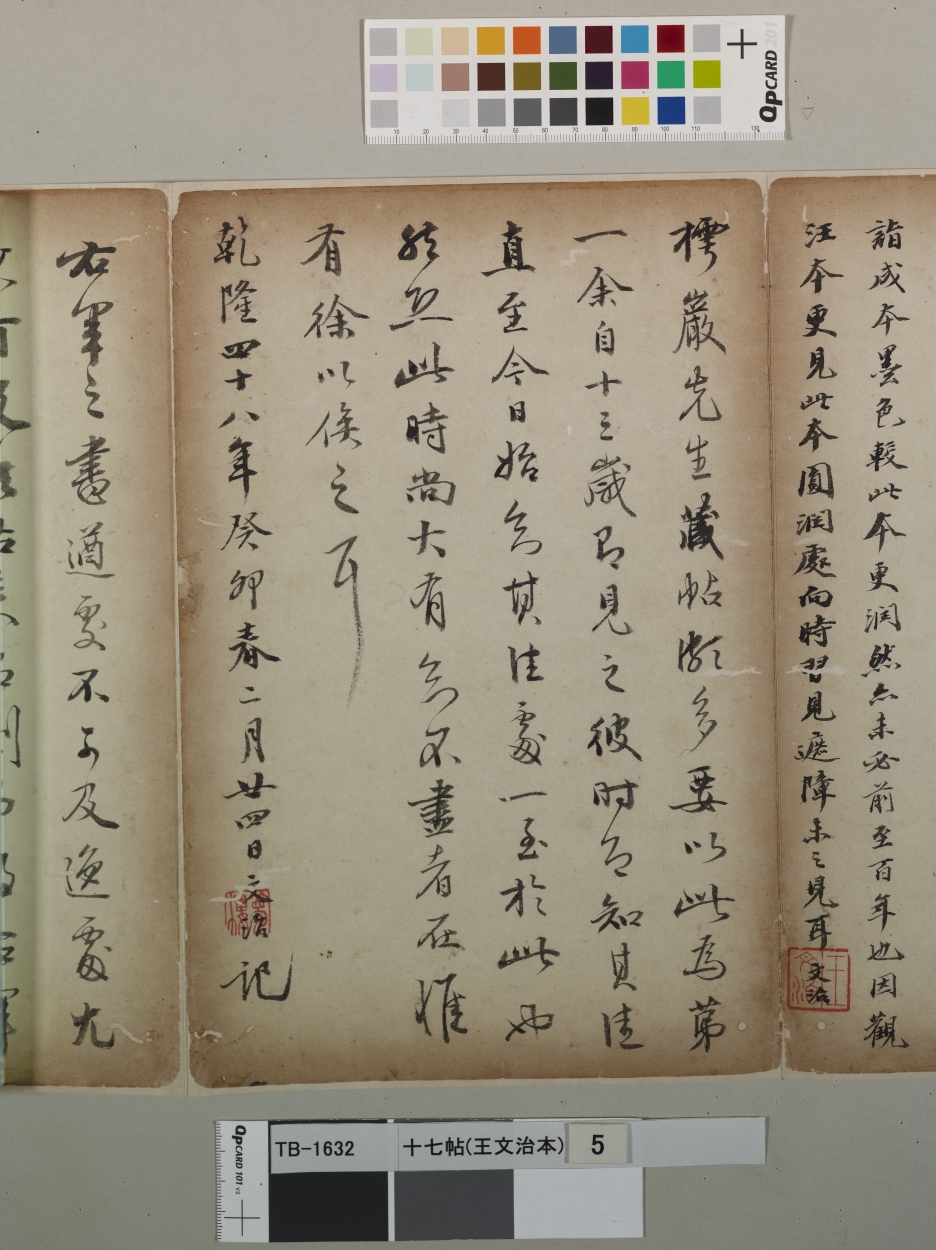 詣成本墨色較此本更潤然亦未必前至百年也因觀
汪本更見此本圓潤處向時習見遮障未之見耳文治
樗巖先生藏帖頗多要以此為第
一余自十三歲即見之彼時已知其佳
直至今日始知其佳處一至於此也
然思此時尚大有知不盡者在惟
有徐以俟之耳
乾隆四十八年癸卯春二月廿四日文治記
右軍之書遒處不可及逸處尤
QPCARD 201
10 20 30 40 50 60 70 80 90 100 110 130
QPCARD 101 v2
TB-1632 十七帖(王文治本) 5